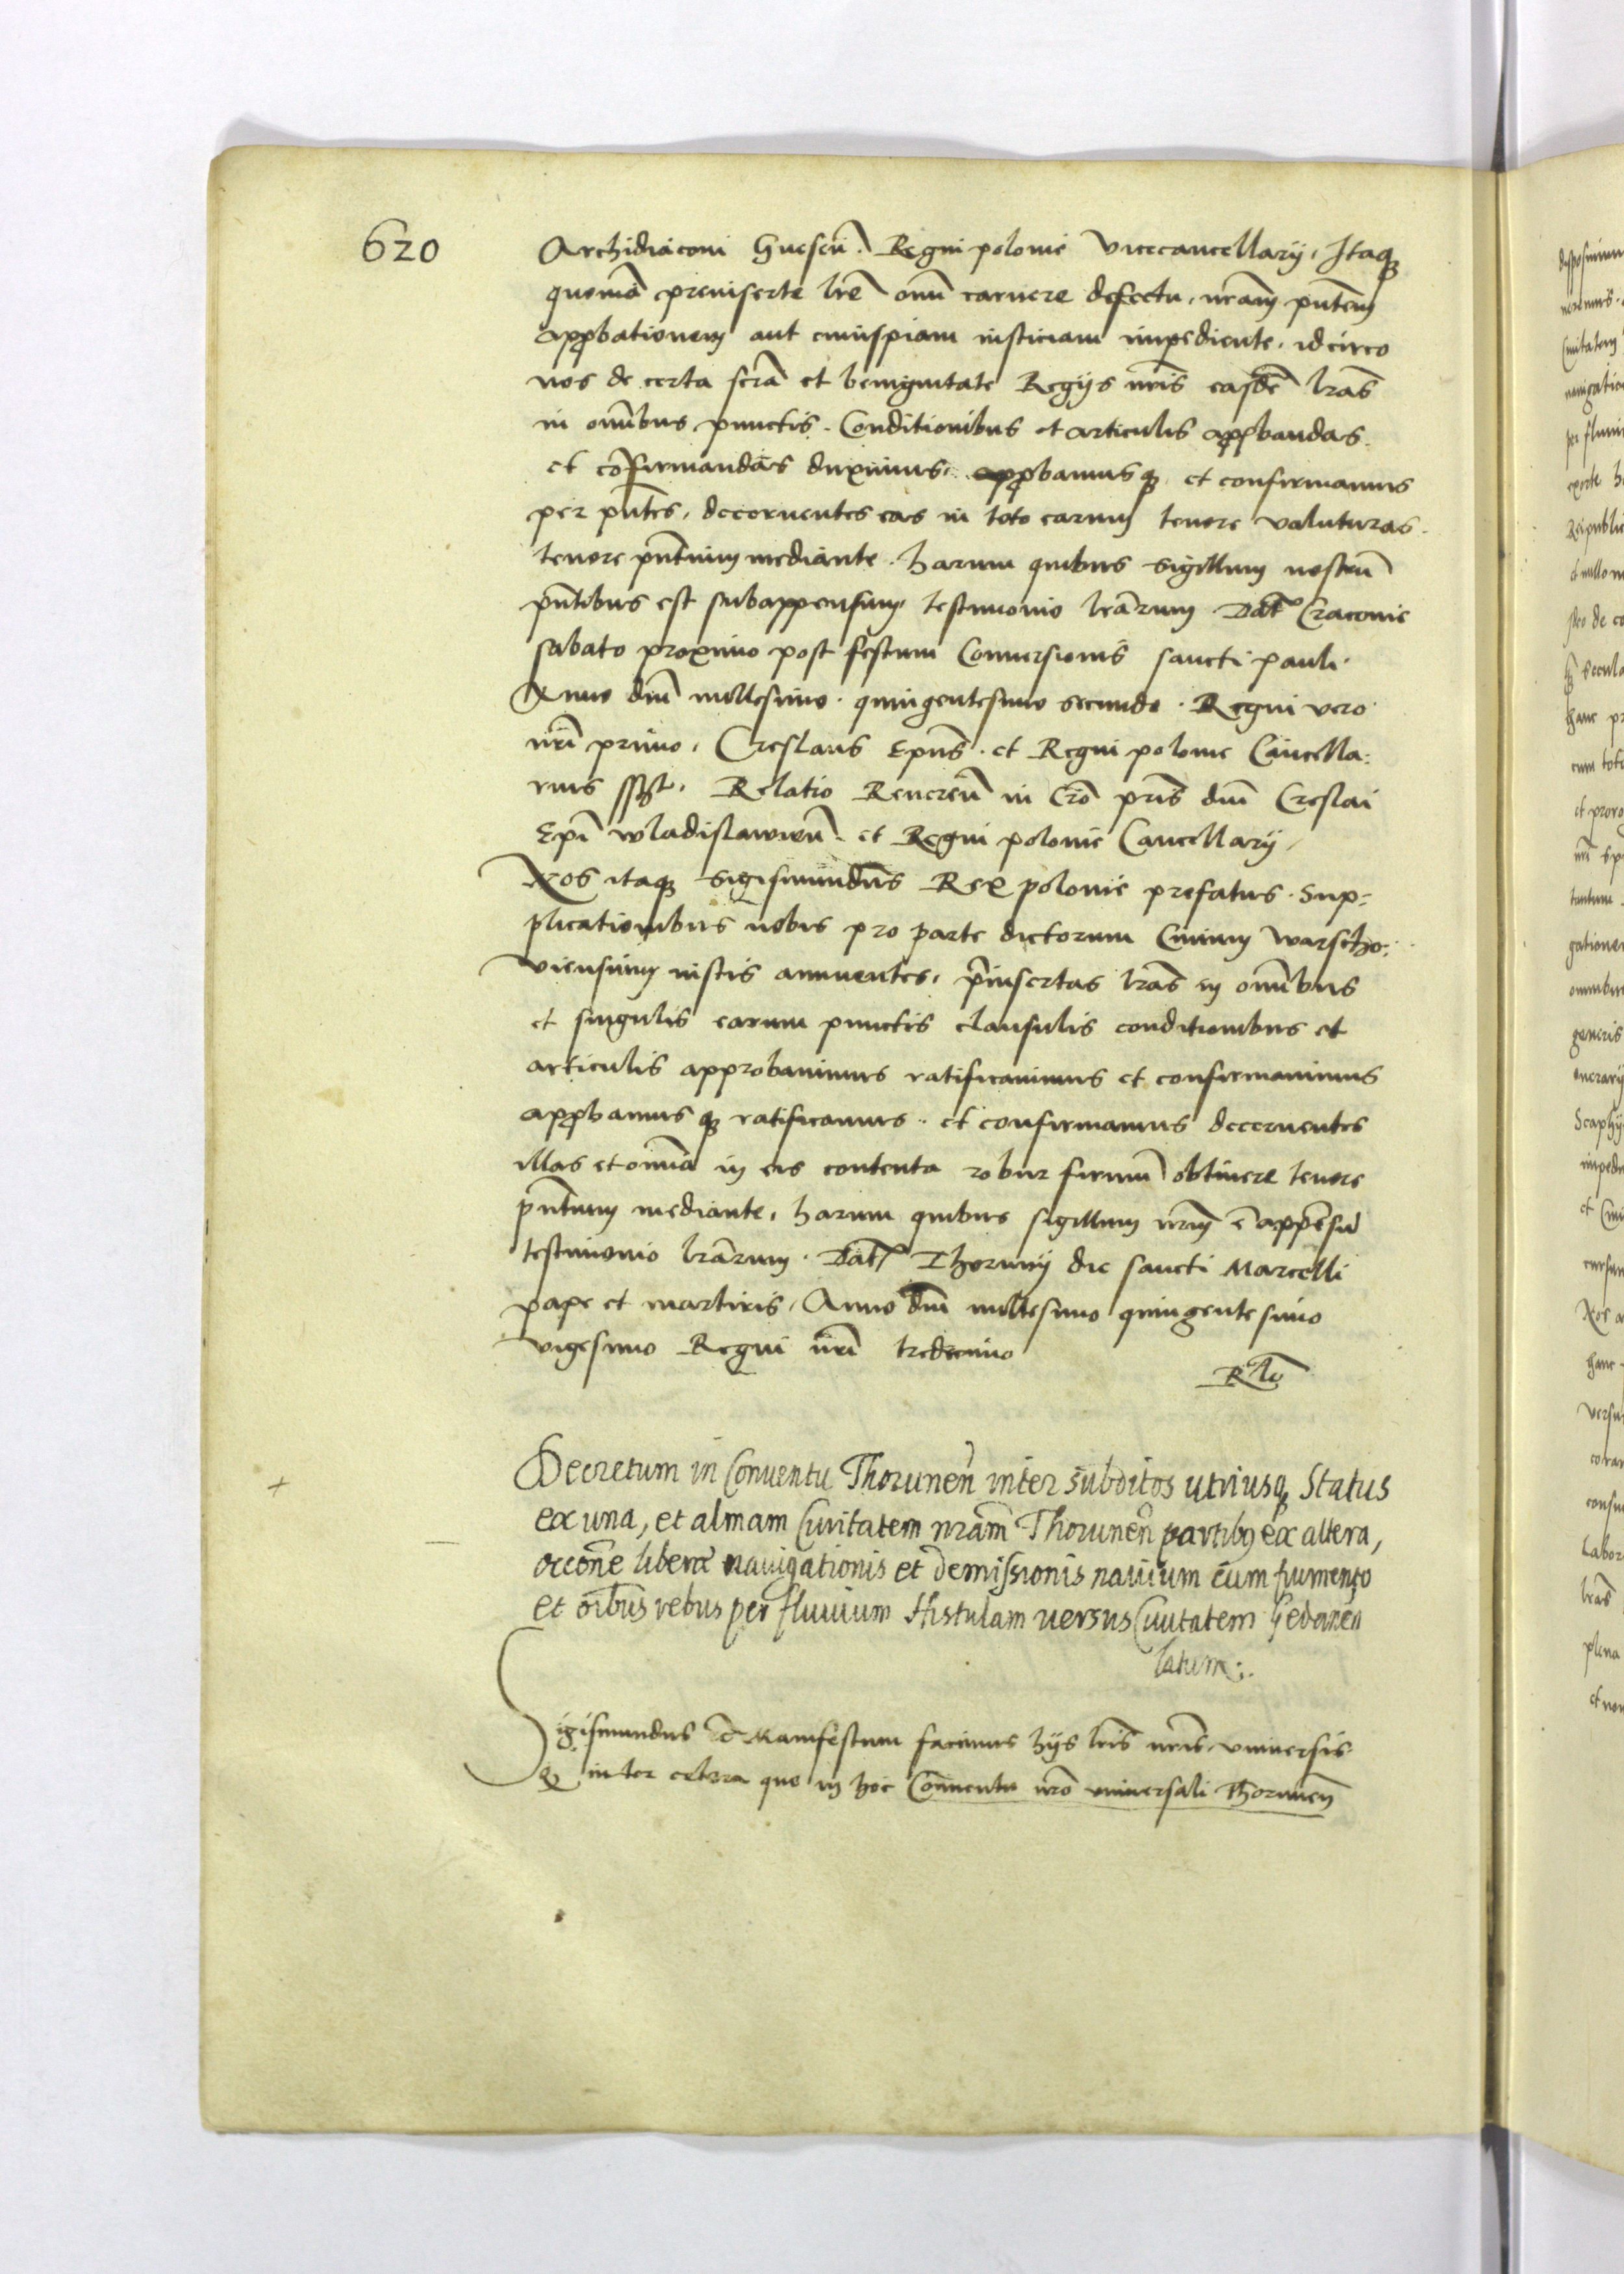 620
Archidiaconi Gnesen̄. Regni polonie Vicecancellarij, Itaqꝫ
quoniā preinserte lr̄e om̄i caruere defectu, nr̄am pn̄tem
approbationem aut cuiuspiam iusticiam impediente, idcirco
nos de certa scrā et benignitate Regijs nr̄is easdē lr̄as
in om̄ibus punctis. Conditionibus et articulis approbandas.
et cōfirmandas duximus, approbamusqꝫ et confirmamus
per pn̄tes, decernentes eas in toto earum tenore valituras.
tenore pn̄tium mediante. harum quibus sigillum nostrū
pn̄tibus est subappensum, testimonio lr̄arum. Dat̄ Cracouie
sabato proximo post festum Conuersionis sancti pauli.
Anno dn̄i millesimo. quingentesimo secundo. Regni vero
nr̄i primo, Creslaus Ep̄us. et Regni polonie Cancella:
rius sst, Relatio Reueren̄ in Crō pr̄is dn̄i Creslai
Ep̄i wladislawien̄. et Regni polonie Cancellarij,
Nos itaqꝫ Sigismundus Rex polonie prefatus. Sup=
plicationibus nobis pro parte dictorum Ciuium warscho:
viensium iustis annuentes, p̄insertas lr̄as in om̄ibus
et singulis earum punctis clausulis conditionibus et
articulis approbauimus ratificauimus et confirmauimus
approbamusqꝫ ratificamus. et confirmamus decernentes
illas et om̄ia in eis contenta robur firmū obtinere tenore
pn̄tium mediante, harum quibus sigillum nr̄um ē appēsū
testimonio lr̄arum. Dat̄ Thorunij die sancti Marcelli
pape et martiris, Anno dn̄i millesimo quingentesimo
vigesimo Regni nr̄i tredecimo
Rlō
Decretum in Conuentu Thorunen̄ inter subditos utriusqꝫ Status
ex una, et almam Ciuitatem nr̄am Thorunen̄ partibꝫ ex altera,
occōne liberæ nauigationis et demissionis nauium cum frumento
et oībus rebus per fluuium Histulam uersus Ciuitatem Gedanen̄
latum:.
Sigismundus &c̄ Manifestum facimus hijs lr̄is nr̄is, vniuersis.
Qꝫ inter cetera que in hoc Conuentu nr̄o vniuersali Thorunen̄